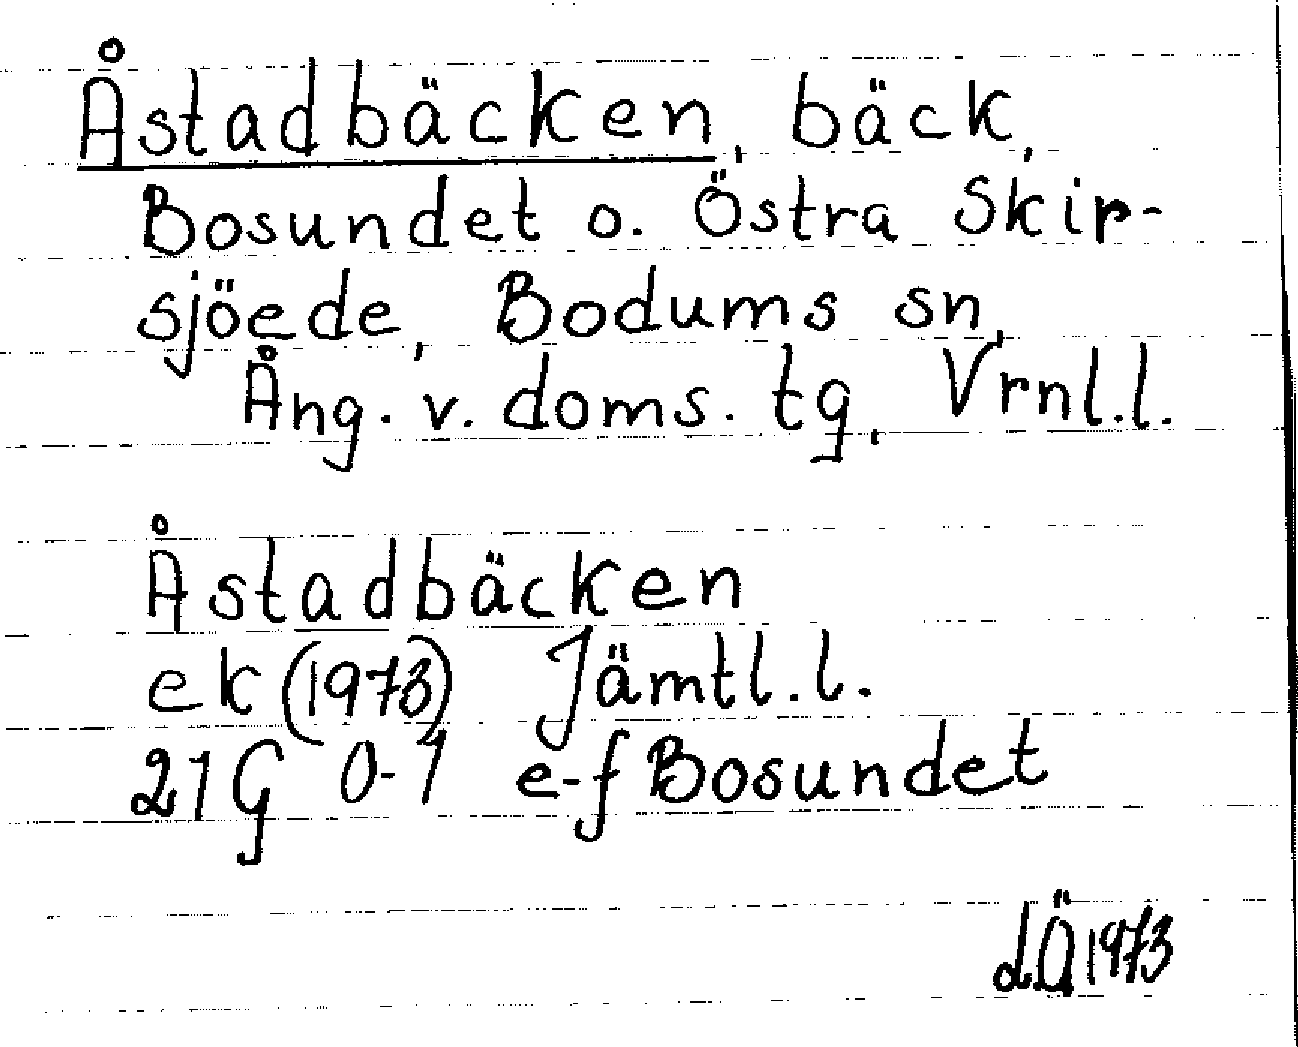 Åstadbäcken, bäck,
Bosundet o. Östra Skir-
sjöede, Bodums sn,
Ång. v. doms. tg, Vrnl.l.
Åstadbäcken
ek (1973) Jämtl.l.
21G 0-1 e-f Bosundet
dÄ 1973